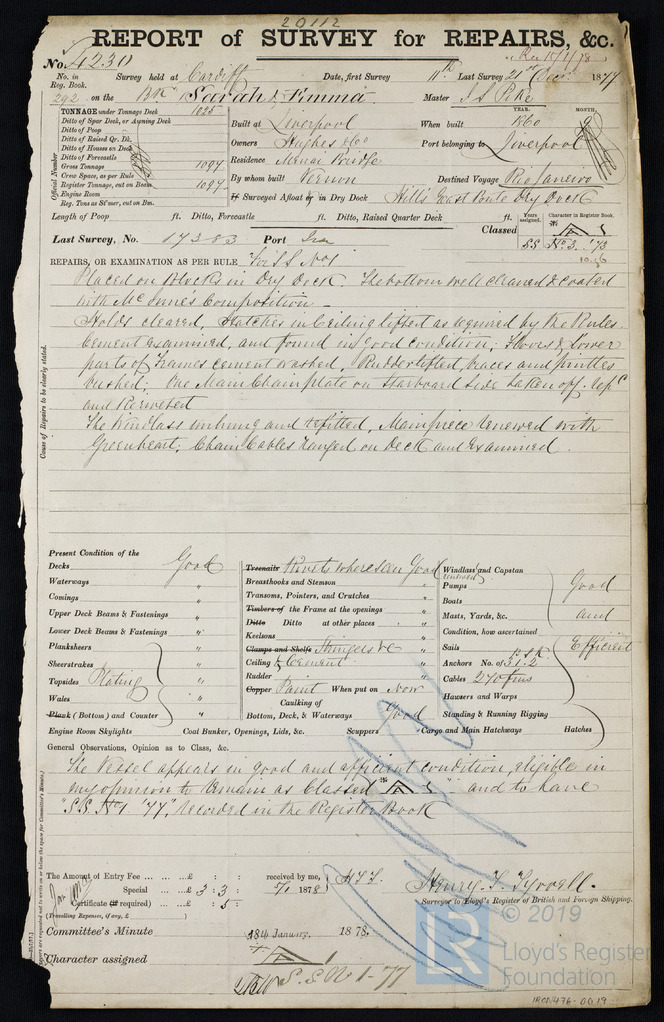 20112
REPORT of SURVEY for REPAIRS, &c.
No. 4230 Rec 15/1/78
No. in Reg. Book. Survey held at Cardiff Date, first Survey 11th Last Survey 21st Decr 1877
292 on the Bk Sarah & Emma Master J S Pike
TONNAGE under Tonnage Deck 1025
Ditto of Spar Deck, or Awning Deck
Ditto of Poop
Ditto of Raised Qr. Dk.
Ditto of Houses on Deck
Ditto of Forecastle
Gross Tonnage 1097
Crew Space, as per Rule
Register Tonnage, cut on Beam 1097
Engine Room
Reg. Tons as St'mer, cut on Bm.
Official Number
YEAR. MONTH.
Built at Liverpool When built 1860
Owners Hughes & Co Port belonging to Liverpool
Residence Menai Bridge
By whom built Vernon Destined Voyage Rio Janeiro
If Surveyed Afloat or in Dry Dock Hill's Dry Dock
Length of Poop ft. Ditto, Forecastle ft. Ditto, Raised Quarter Deck ft.
Classed Years assigned. Character in Register Book.
A
SS No. 3. '73
10.76
Last Survey, No. 17383 Port
REPAIRS, OR EXAMINATION AS PER RULE For SS No 1
Placed on blocks in Dry Dock. The bottom well cleaned & coated
with McInnes Composition –
Holds cleared, Hatches in Ceiling lifted as required by the Rules.
Cement examined, and found in good condition; Floors & lower
parts of Frames cement washed, Rudder lifted, braces and pintles
bushed; One Main Chain plate on Starboard side taken off,
and Reriveted
The Windlass unhung and refitted, Mainpiece renewed with
Greenheart; Chain Cables ranged on Deck and examined.
Cause of Repairs to be clearly stated.
Present Condition of the
Decks Good
Waterways "
Comings "
Upper Deck Beams & Fastenings "
Lower Deck Beams & Fastenings "
Planksheers "
Sheerstrakes "
Topsides Plating "
Wales "
Plank (Bottom) and Counter "
Engine Room Skylights
Treenails Rivets where seen Good
Breasthooks and Stemson "
Transoms, Pointers, and Crutches "
Timbers of the Frame at the openings "
Ditto Ditto at other places "
Keelsons "
Clamps and Shelfs Stringers &c "
Ceiling & Cement "
Rudder "
Copper Paint When put on Now
Caulking of
Bottom, Deck, & Waterways Good
Coal Bunker, Openings, Lids, &c. Scuppers Cargo and Main Hatchways Hatches
Windlass and Capstan
renewed
Pumps Good
Boats
Masts, Yards, &c. and
Condition, how ascertained
Sails Efficient
B.S.K.
Anchors No. of 3.1.2
Cables 270 fms
Hawsers and Warps
Standing & Running Rigging
General Observations, Opinion as to Class, &c.
The Vessel appears in good and efficient condition, eligible in
my opinion to remain as Classed A and to have
"S.S. No 1 '77," recorded in the Register Book
The Amount of Entry Fee ... ... ... £ : : received by me,
Special ... ... £ 3 : 3 : 5/1 1878 HTL
Certificate (if required) ... : 5 :
(Travelling Expenses, if any, £ )
Henry T. Tyrrell.
Surveyor to Lloyd's Register of British and Foreign Shipping.
Committee's Minute 18th January. 1878.
Character assigned A
S.S. No 1-77
© 2019
LR
Lloyd's Register
Foundation
IRON476-0019